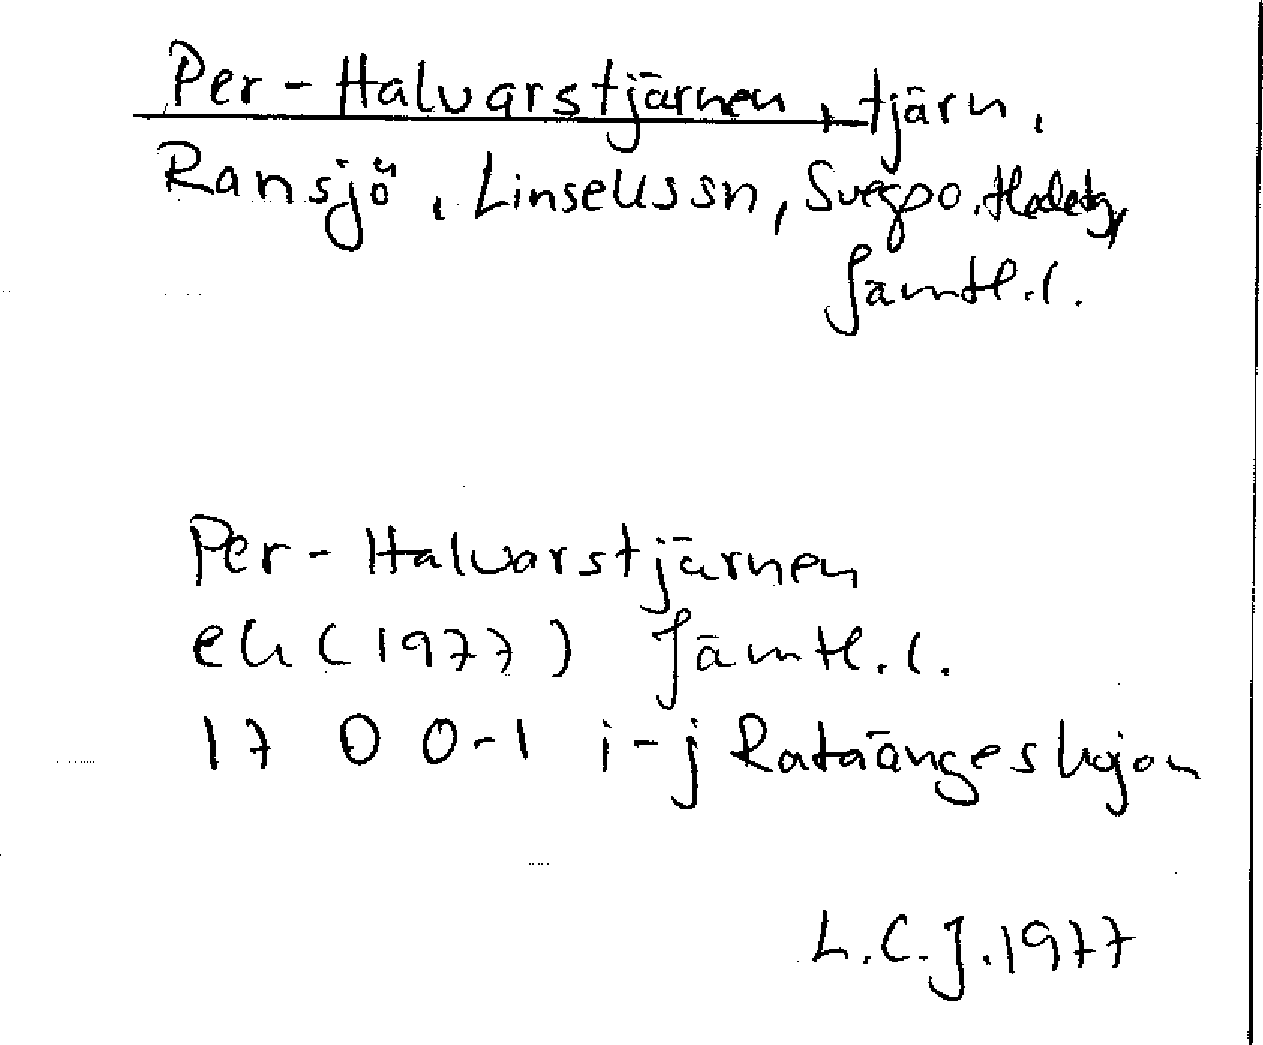 Per-Halvarstjärnen, tjärn,
Ransjö, Linsellssn, Svegpo,
Jämtl.l.
Per-Halvarstjärnen
ek (1977) Jämtl.l.
17 0 0-1 i-j Rataängeskojan
L.C.J. 1977